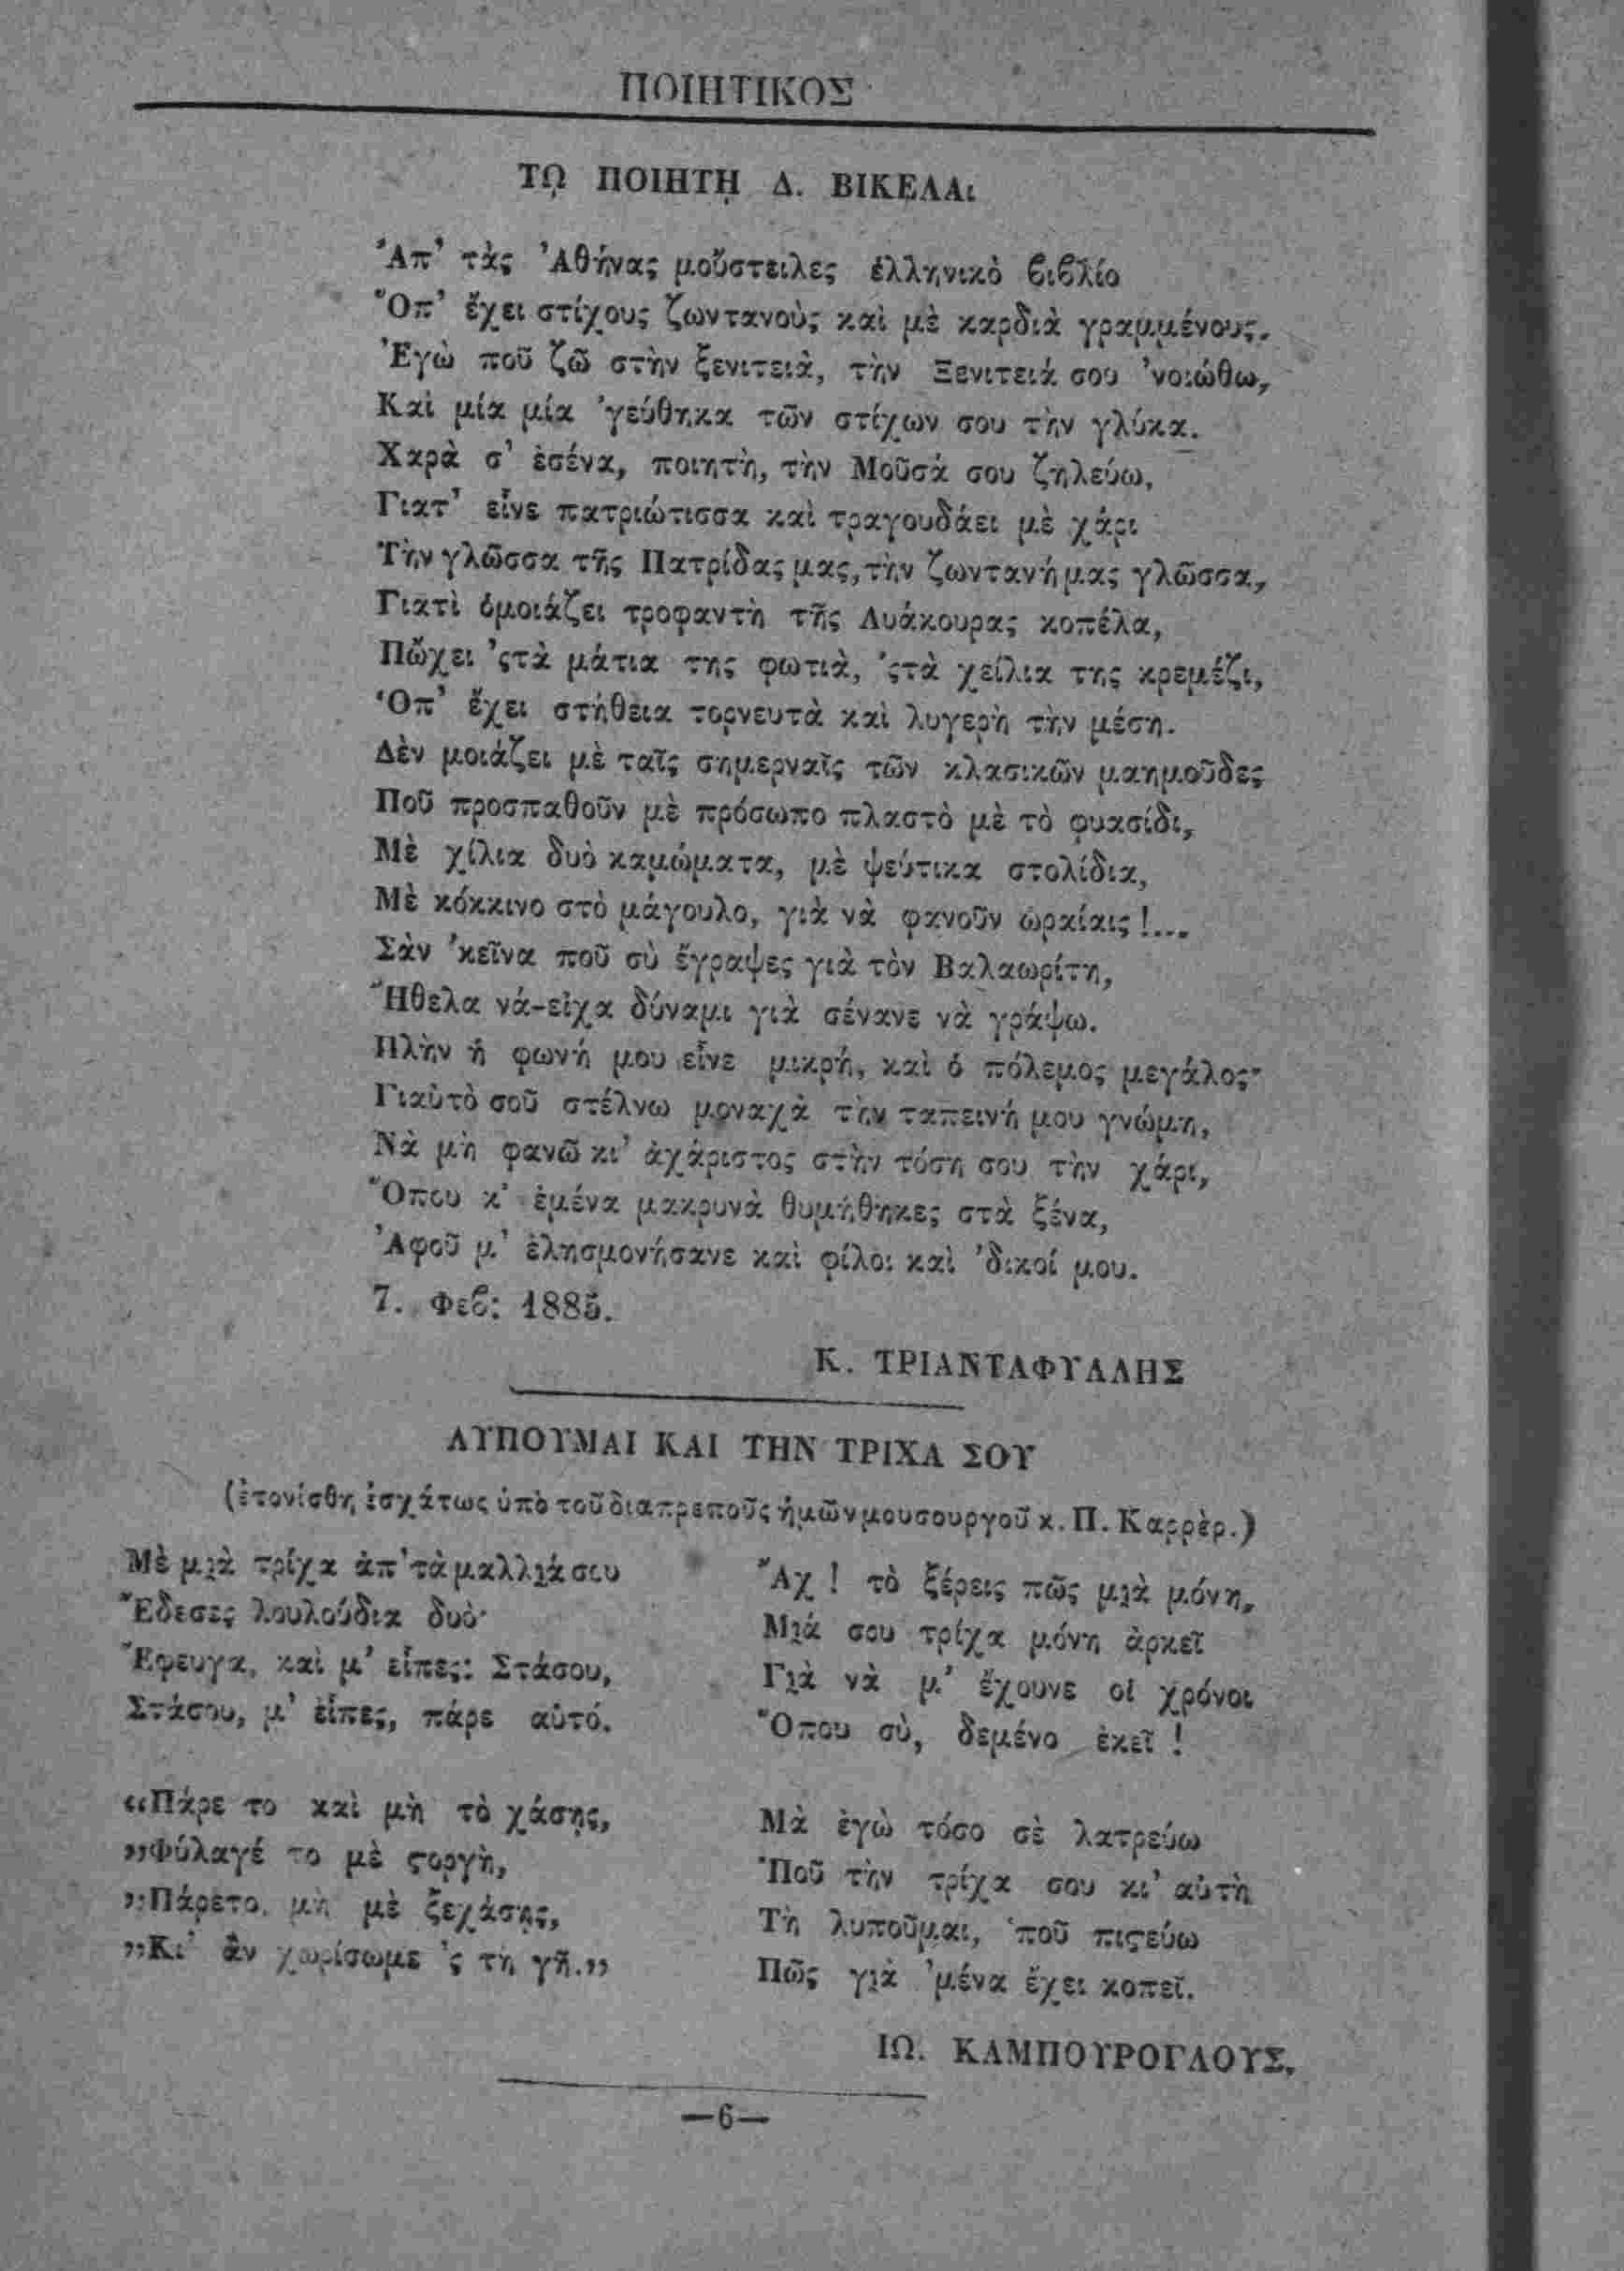 ΠΟΙΗΤΙΚΟΣ
Τῼ ΠΟΙΗΤῌ Δ. ΒΙΚΕΛΑι
Ἀπ’ τὰς Ἀθήνας μοὔστειλες ἑλληνικὸ βιβλίο
Ὅπ’ ἔχει στίχους ζωντανοὺς καὶ μὲ καρδιὰ γραμμένους.
Ἐγὼ ποῦ ζῶ στὴν ξενιτειὰ, τὴν Ξενιτειά σου ’νοιώθω,
Καὶ μία μία ’γεύθηκα τῶν στίχων σου τὴν γλύκα.
Χαρὰ σ’ ἐσένα, ποιητὴ, τὴν Μοῦσά σου ζηλεύω,
Γιατ’ εἶνε πατριώτισσα καὶ τραγουδάει μὲ χάρι
Τὴν γλῶσσα τῆς Πατρίδας μας, τὴν ζωντανή μας γλῶσσα,
Γιατὶ ὁμοιάζει τροφαντὴ τῆς Λυάκουρας κοπέλα,
Πὤχει ’ςτὰ μάτια της φωτιὰ, ’ςτὰ χείλια της κρεμέζι,
Ὁπ’ ἔχει στήθεια τορνευτὰ καὶ λυγερὴ τὴν μέση.
Δὲν μοιάζει μὲ ταῖς σημερναῖς τῶν κλασικῶν μαημοῦδες
Ποῦ προσπαθοῦν μὲ πρόσωπο πλαστὸ μὲ τὸ φυασίδι,
Μὲ χίλια δυὸ καμώματα, μὲ ψεύτικα στολίδια,
Μὲ κόκκινο στὸ μάγουλο, γιὰ νὰ φανοῦν ὡραίαις !....
Σὰν ’κεῖνα ποῦ σὺ ἔγραψες γιὰ τὸν Βαλαωρίτη,
Ἤθελα νά-εἶχα δύναμι γιὰ σένανε νὰ γράψω.
Πλὴν ἡ φωνή μου εἶνε μικρή, καὶ ὁ πόλεμος μεγάλος·
Γιαὐτὸ σοῦ στέλνω μοναχὰ τὴν ταπεινή μου γνώμη,
Νὰ μὴ φανῶ κι’ ἀχάριστος στὴν τόση σου τὴν χάρι,
Ὅπου κ’ ἐμένα μακρυνὰ θυμήθηκες στὰ ξένα,
Ἀφοῦ μ’ ἐλησμονήσανε καὶ φίλοι καὶ ’δικοί μου.
7. Φεβ: 1885.
Κ. ΤΡΙΑΝΤΑΦΥΛΛΗΣ
ΛΥΠΟΥΜΑΙ ΚΑΙ ΤΗΝ ΤΡΙΧΑ ΣΟΥ
(ἐτονίσθη ἐσχάτως ὑπὸ τοῦ διαπρεποῦς ἡμῶν μουσουργοῦ κ. Π. Καρρὲρ.)
Μὲ μιὰ τρίχα ἀπ’ τὰ μαλλιά σου
Ἔδεσες λουλούδια δυὸ·
Ἔφευγα, καὶ μ’ εἶπες: Στάσου,
Στάσου, μ’ εἶπες, πάρε αὐτό.
«Πάρε το καὶ μὴ τὸ χάσῃς,
»Φύλαγέ το μὲ ϛοργὴ,
»Πάρετο, μὴ μὲ ξεχάσῃς,
»Κι’ ἂν χωρίσωμε ’ς τὴ γῆ.»
Ἄχ ! τὸ ξέρεις πῶς μιὰ μόνη,
Μιά σου τρίχα μόνη ἀρκεῖ
Γιὰ νὰ μ’ ἔχουνε οἱ χρόνοι
Ὅπου σὺ, δεμένο ἐκεῖ !
Μὰ ἐγὼ τόσο σὲ λατρεύω
Ποῦ τὴν τρίχα σου κι’ αὐτὴ
Τὴ λυποῦμαι, ’ποῦ πιϛεύω
Πῶς γιὰ ’μένα ἔχει κοπεῖ.
ΙΩ. ΚΑΜΠΟΥΡΟΓΛΟΥΣ.
—6—